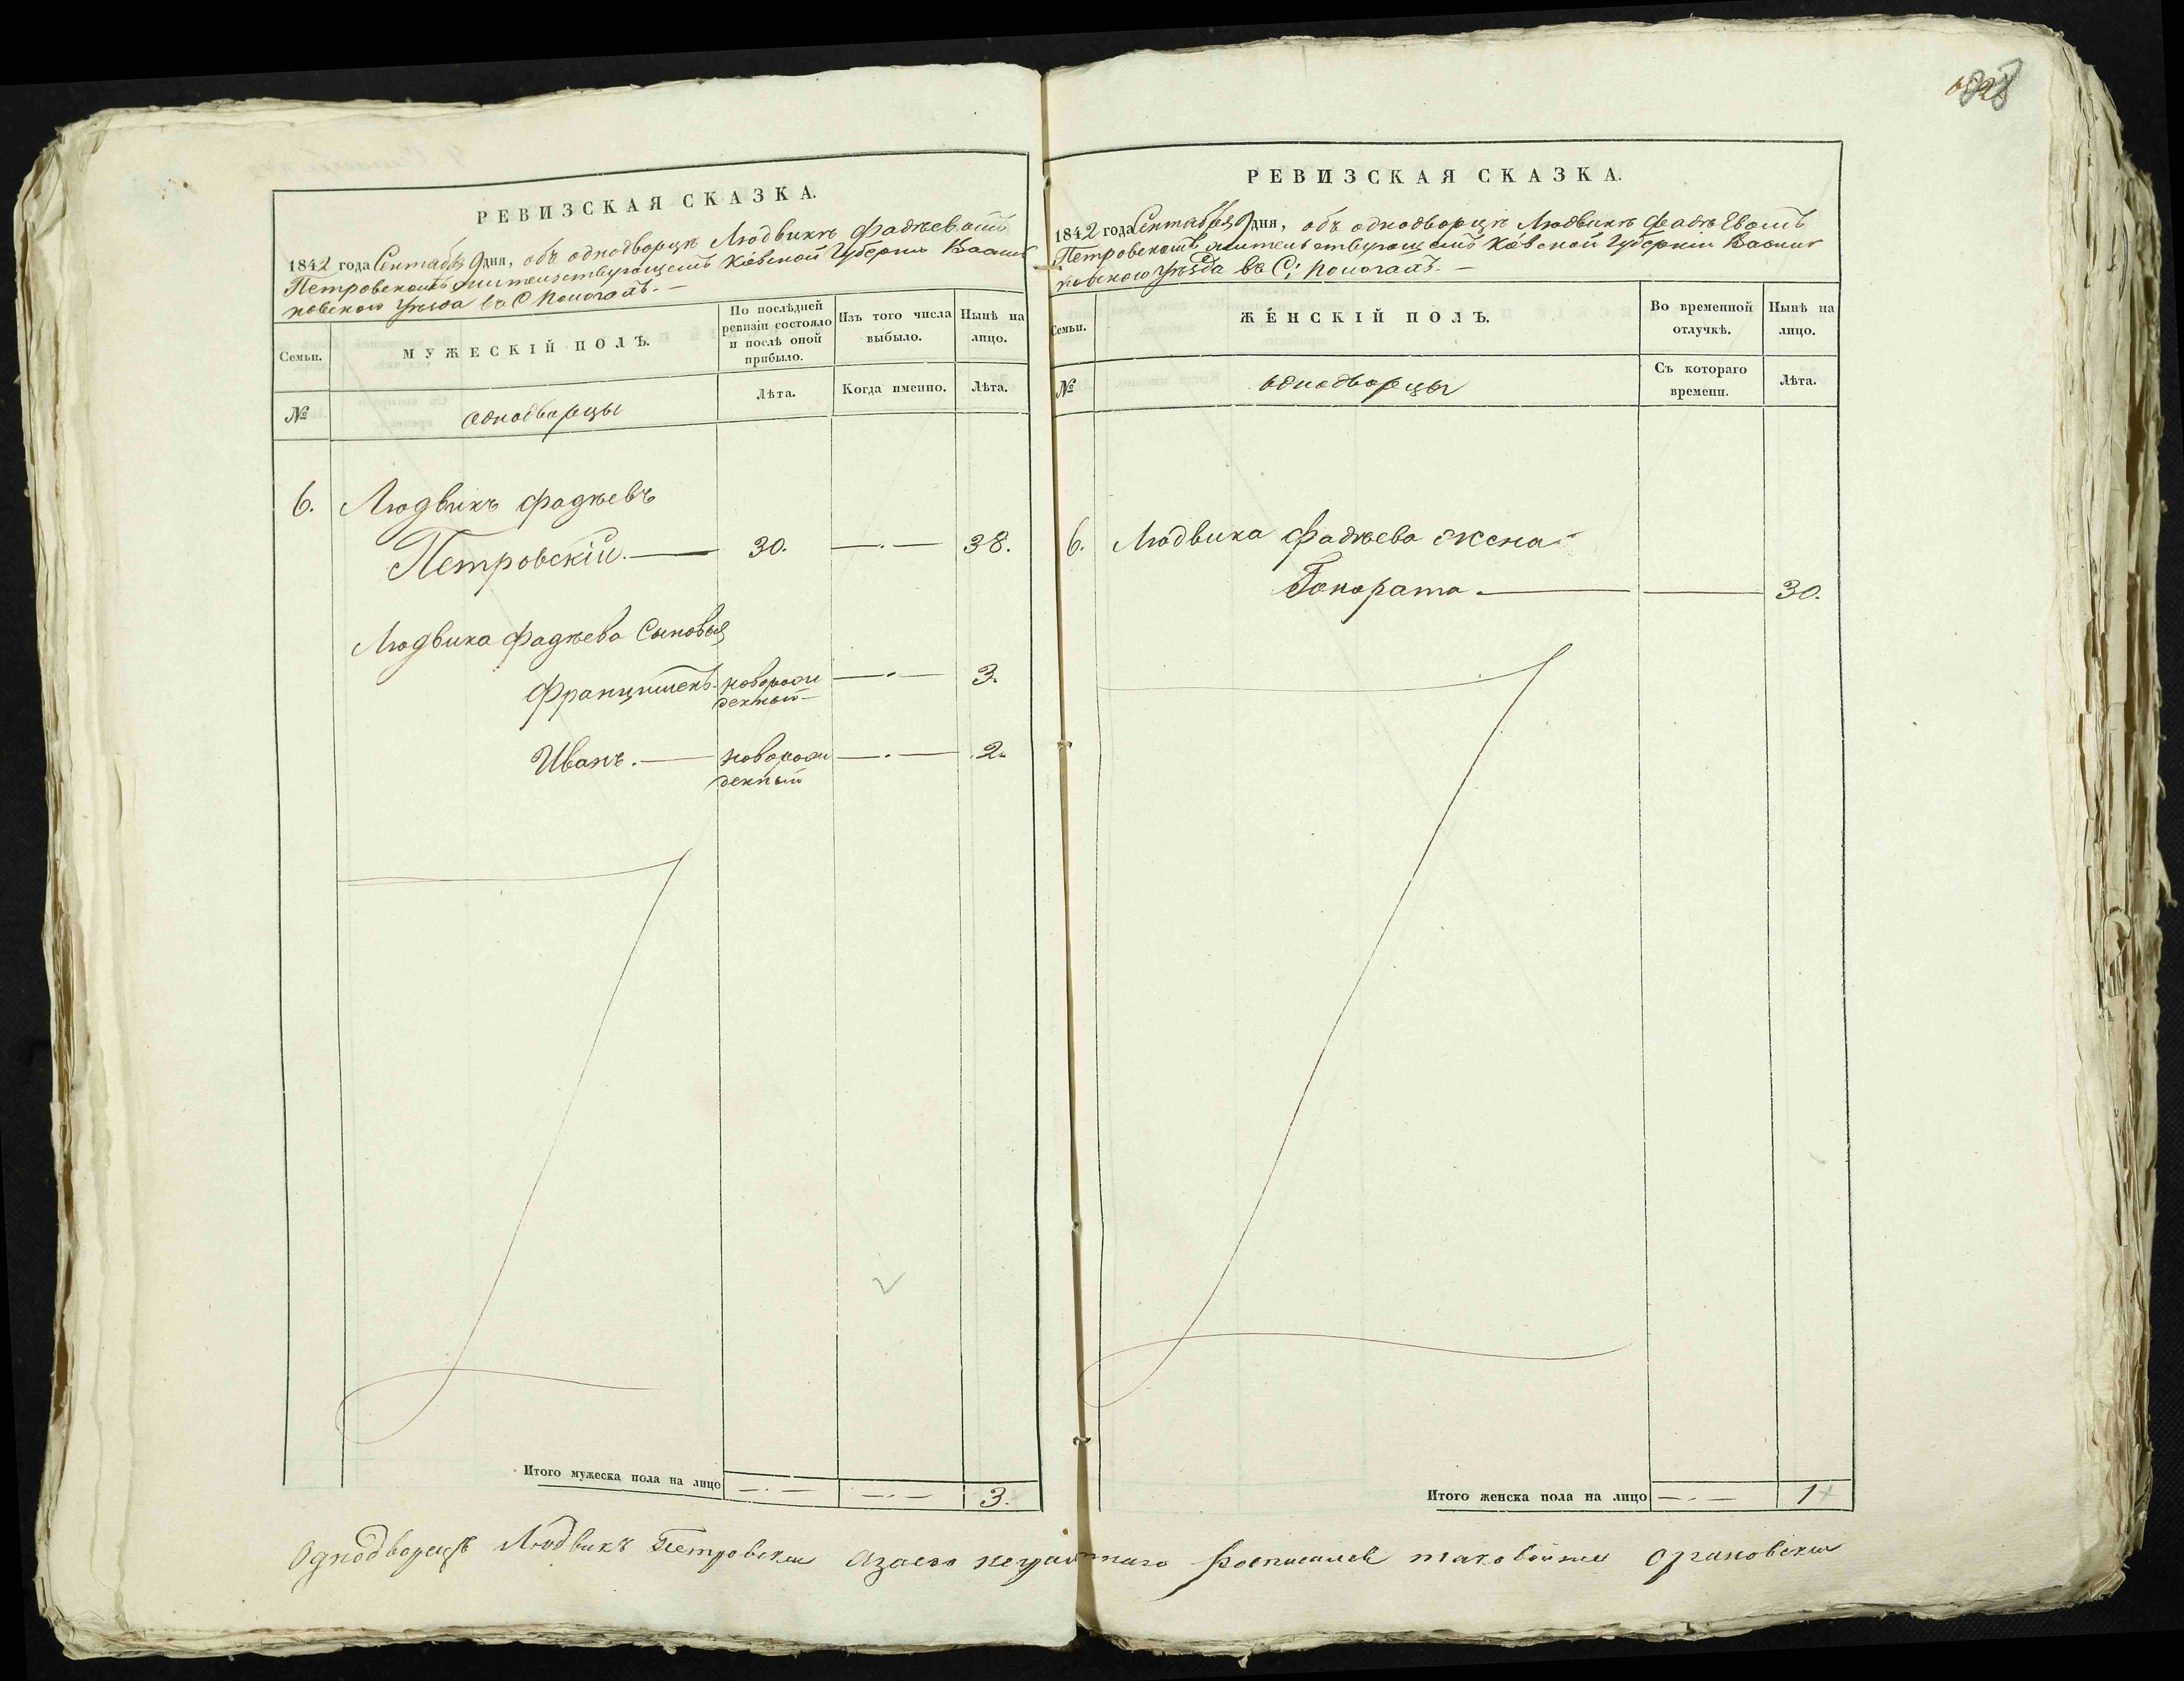 РЕВИЗСКАЯ СКАЗКА.
1842 года Сентабря 9 дня, объ однодворцѣ Людвикѣ Фадѣевомъ
Петровскомъ жительствующемъ Кіевской Губерніи Василь
ковскаго Уѣзда въ С
Семьи.
МУЖЕСКІЙ ПОЛЪ.
По послѣдней ревизіи состояло и послѣ оной прибыло.
Изъ того числа выбыло.
Нынѣ на лицо.
№
однодворцы
Лѣта.
Когда именно.
Лѣта.
6. Людвикъ Фадѣевъ
Петровскій. — 30. —.— 38.
Людвика Фадѣева Сыновья
Францишекъ новорож —.— 3.
денный
Иванъ. — новорож —.— 2.
денный
Итого мужеска пола на лицо —.— —.— 3.
РЕВИЗСКАЯ СКАЗКА.
1842 года Сентабря 9 дня, объ однодворцѣ Людвикѣ Фадѣевомъ
Петровскомъ жительствующемъ Кіевской Губерніи Василь
ковскаго Уѣзда въ С:
Семьи.
ЖЕНСКІЙ ПОЛЪ.
Во временной отлучкѣ.
Нынѣ на лицо.
№
однодворцы
Съ котораго времени.
Лѣта.
6. Людвика Фадѣева жена
Гонората — — 30.
Итого женска пола на лицо —.— 1
Однодворецъ Людвикъ Петровски азаего неграмотнаго росписался таковойже